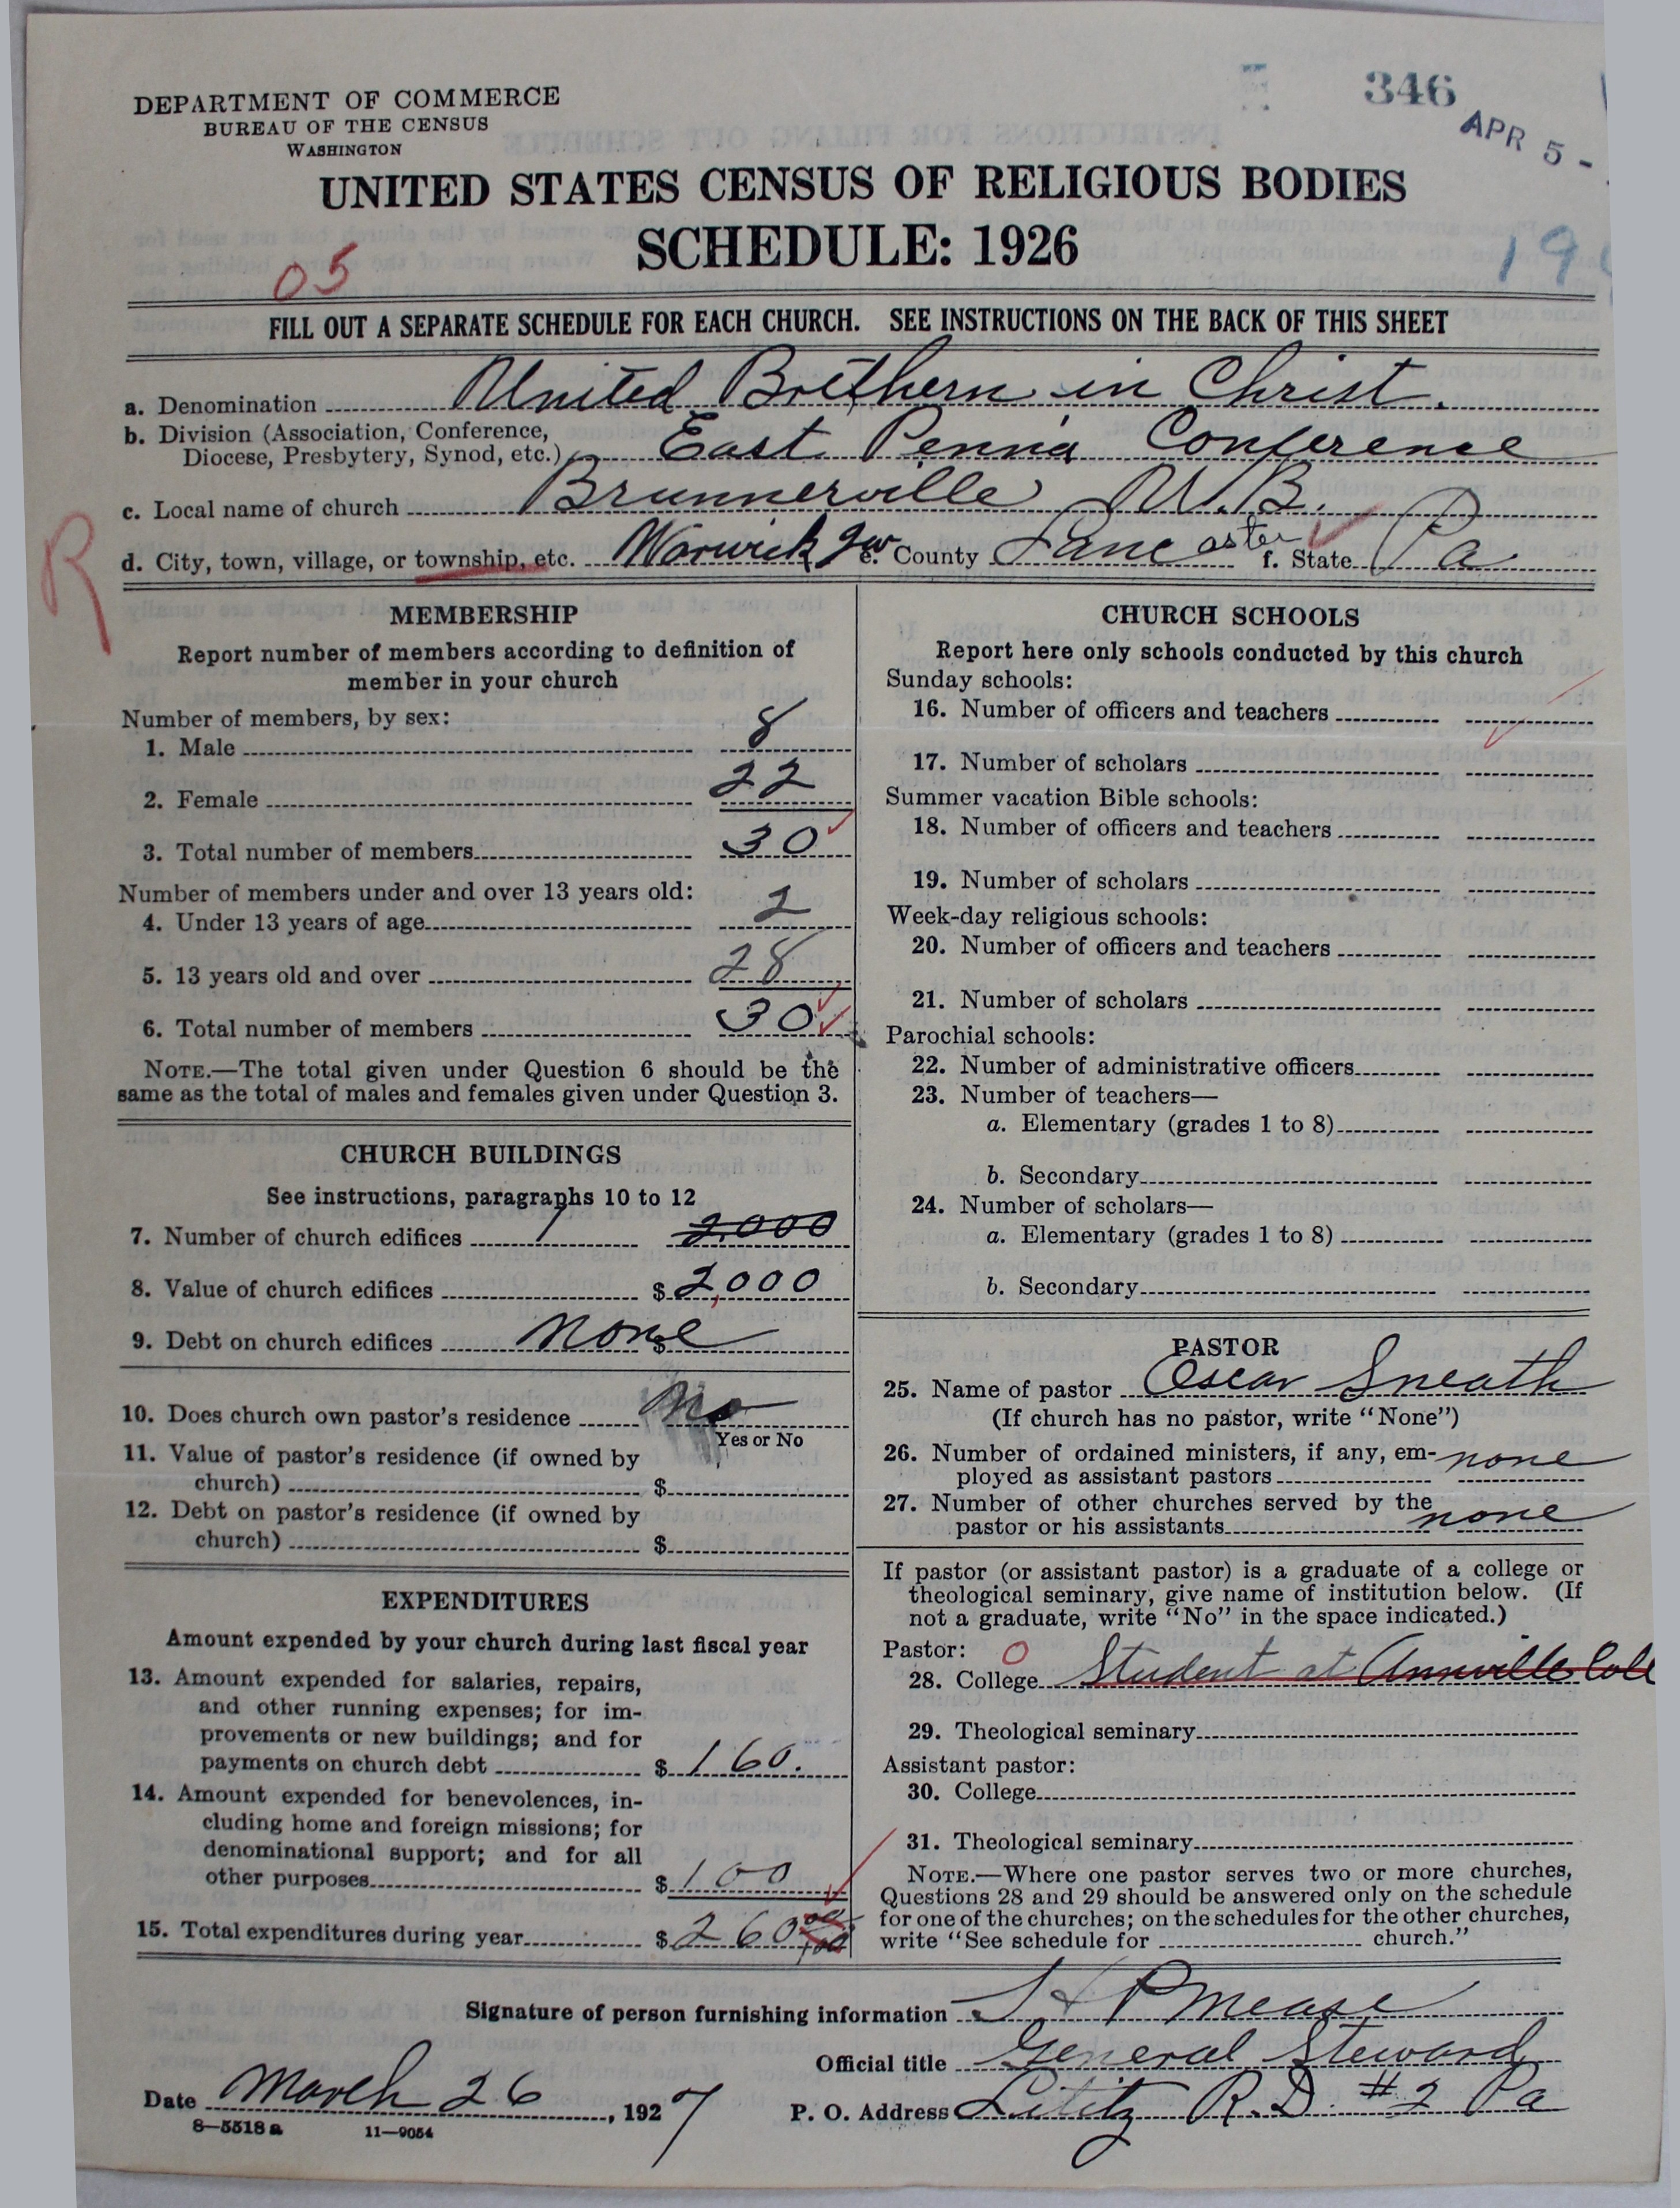 346
APR 5 -
DEPARTMENT OF COMMERCE
BUREAU OF THE CENSUS
WASHINGTON
UNITED STATES CENSUS OF RELIGIOUS BODIES
SCHEDULE: 1926
05
19
FILL OUT A SEPARATE SCHEDULE FOR EACH CHURCH. SEE INSTRUCTIONS ON THE BACK OF THIS SHEET
a. Denomination United Brethern in Christ.
b. Division (Association, Conference,
Diocese, Presbytery, Synod, etc.) East Penna Conference
c. Local name of church Brunnerville U.B.
R
d. City, town, village, or township, etc. Warwick Twp e. County Lancaster f. State Pa
MEMBERSHIP
Report number of members according to definition of
member in your church
Number of members, by sex:
1. Male 8
2. Female 22
3. Total number of members 30
Number of members under and over 13 years old:
4. Under 13 years of age 2
5. 13 years old and over 28
6. Total number of members 30
NOTE.—The total given under Question 6 should be the
same as the total of males and females given under Question 3.
CHURCH BUILDINGS
See instructions, paragraphs 10 to 12
7. Number of church edifices 1 2,000
8. Value of church edifices $ 2,000
9. Debt on church edifices none $
10. Does church own pastor's residence No
Yes or No
11. Value of pastor's residence (if owned by
church) $
12. Debt on pastor's residence (if owned by
church) $
EXPENDITURES
Amount expended by your church during last fiscal year
13. Amount expended for salaries, repairs,
and other running expenses; for im-
provements or new buildings; and for
payments on church debt $ 160.
14. Amount expended for benevolences, in-
cluding home and foreign missions; for
denominational support; and for all
other purposes $ 100
15. Total expenditures during year $ 260 00/100
CHURCH SCHOOLS
Report here only schools conducted by this church
Sunday schools:
16. Number of officers and teachers
17. Number of scholars
Summer vacation Bible schools:
18. Number of officers and teachers
19. Number of scholars
Week-day religious schools:
20. Number of officers and teachers
21. Number of scholars
Parochial schools:
22. Number of administrative officers
23. Number of teachers—
a. Elementary (grades 1 to 8)
b. Secondary
24. Number of scholars—
a. Elementary (grades 1 to 8)
b. Secondary
PASTOR
25. Name of pastor Oscar Sneath
(If church has no pastor, write "None")
26. Number of ordained ministers, if any, em-
ployed as assistant pastors none
27. Number of other churches served by the
pastor or his assistants none
If pastor (or assistant pastor) is a graduate of a college or
theological seminary, give name of institution below. (If
not a graduate, write "No" in the space indicated.)
Pastor: O
28. College Student at Annville Coll
29. Theological seminary
Assistant pastor:
30. College
31. Theological seminary
NOTE.—Where one pastor serves two or more churches,
Questions 28 and 29 should be answered only on the schedule
for one of the churches; on the schedules for the other churches,
write "See schedule for church."
Signature of person furnishing information H P Mease
Official title General Steward
Date March 26, 1927 P. O. Address Lititz R.D. #2 Pa
8—5518 a 11—9054